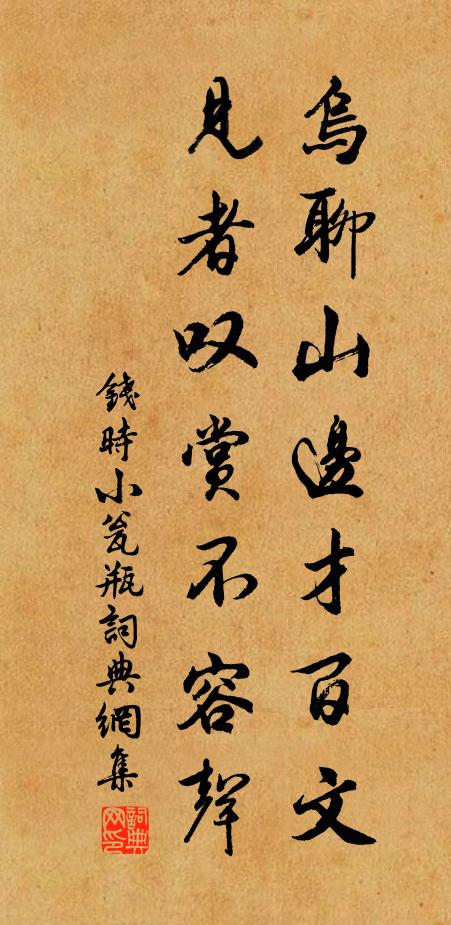 烏聊山邊才百文
見者叹賞不容聲
錢時小瓮瓶詞典網集
詞典網印